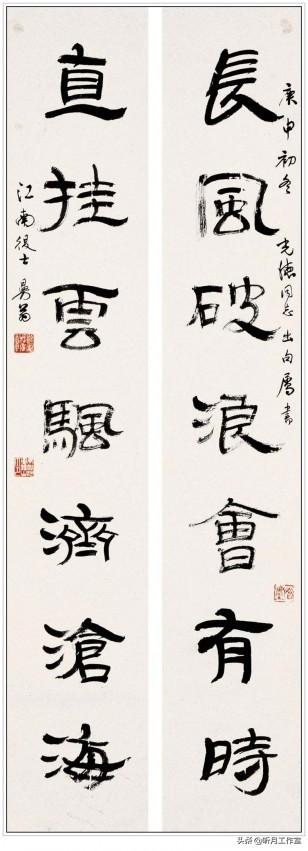 庚申初冬 同志出句屬書
長風破浪會有時
直挂雲颿濟滄海
江南 士 翁
头条@听月工作室